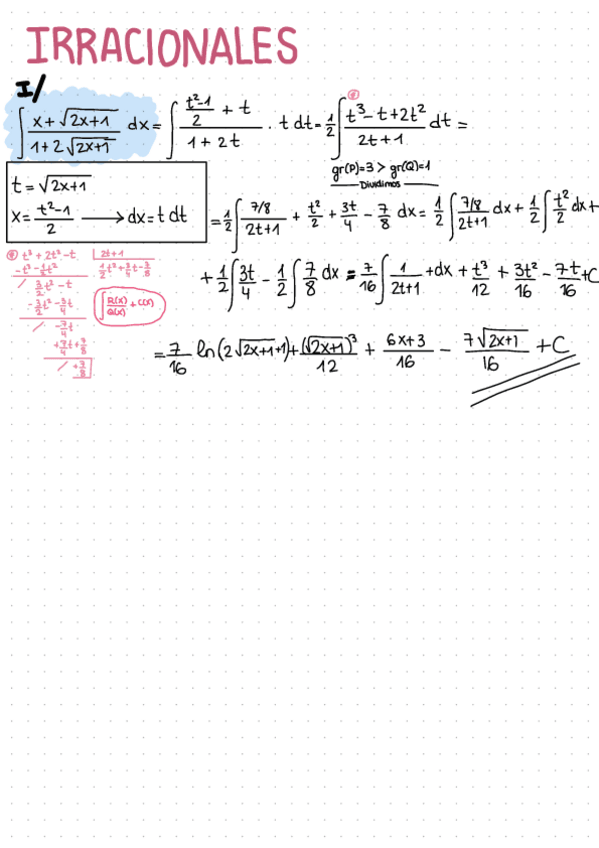 IRRACIONALES
I/
∫ (x+√(2x+1))/(1+2√(2x+1)) dx = ∫ ((t²-1)/2 + t)/(1+2t) · t dt = 1/2 ∫ (t³-t+2t²)/(2t+1) dt =
t = √(2x+1)
x = (t²-1)/2 → dx = t dt
gr(P)=3 > gr(Q)=1
Dividimos
= 1/2 ∫ (7/8)/(2t+1) + t²/2 + 3t/4 - 7/8 dx = 1/2 ∫ (7/8)/(2t+1) dx + 1/2 ∫ t²/2 dx +
t³ + 2t² - t | 2t+1
-t³ - 1/2 t² 1/2 t² + 3/4 t - 7/8
/ 3/2 t² - t
-3/2 t² - 3/4 t
/ -7/4 t
+7/4 t + 7/8
/ +7/8
∫ R(x)/Q(x) + C(x)
+ 1/2 ∫ 3t/4 - 1/2 ∫ 7/8 dx = 7/16 ∫ 1/(2t+1) + dx + t³/12 + 3t²/16 - 7t/16 + C
= 7/16 ln(2√(2x+1)+1) + (√(2x+1))³/12 + (6x+3)/16 - 7√(2x+1)/16 + C